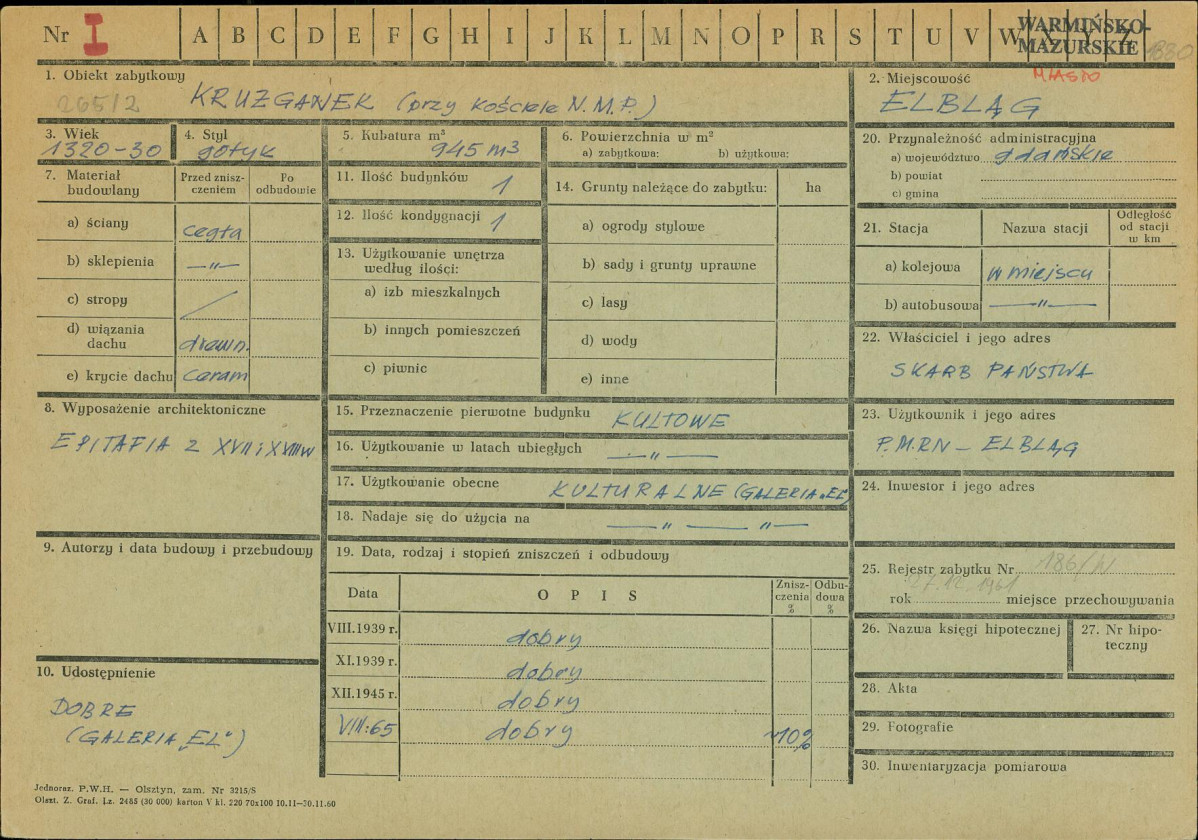 Nr I A B C D E F G H I J K L M N O P R S T U V W Y Z
WARMIŃSKO-
MAZURSKIE
1330
1. Obiekt zabytkowy
265/2 KRUŻGANEK (przy kościele N.M.P.)
2. Miejscowość MIASTO
ELBLĄG
3. Wiek
1320-30
4. Styl
gotyk
5. Kubatura m³
945 m³
6. Powierzchnia w m²
a) zabytkowa: b) użytkowa:
7. Materiał
budowlany
Przed znisz-
czeniem
Po
odbudowie
a) ściany cegła
b) sklepienia —„—
c) stropy /
d) wiązania
dachu drewn.
e) krycie dachu ceram
8. Wyposażenie architektoniczne
EPITAFIA Z XVII i XVIII w
9. Autorzy i data budowy i przebudowy
10. Udostępnienie
DOBRE
(GALERIA „EL")
11. Ilość budynków 1
12. Ilość kondygnacji 1
13. Użytkowanie wnętrza
według ilości:
a) izb mieszkalnych
b) innych pomieszczeń
c) piwnic
14. Grunty należące do zabytku: ha
a) ogrody stylowe
b) sady i grunty uprawne
c) lasy
d) wody
e) inne
15. Przeznaczenie pierwotne budynku KULTOWE
16. Użytkowanie w latach ubiegłych —„—
17. Użytkowanie obecne KULTURALNE (GALERIA „EL"
18. Nadaje się do użycia na —„— —„—
19. Data, rodzaj i stopień zniszczeń i odbudowy
Data OPIS
Znisz-
czenia
%
Odbu-
dowa
%
VIII.1939 r. dobry
XI.1939 r. dobry
XII.1945 r. dobry
VIII.65 dobry ~10%
20. Przynależność administracyjna
a) województwo gdańskie
b) powiat
c) gmina
21. Stacja Nazwa stacji
Odległość
od stacji
w km
a) kolejowa w miejscu
b) autobusowa —„—
22. Właściciel i jego adres
SKARB PAŃSTWA
23. Użytkownik i jego adres
P.M.RN — ELBLĄG
24. Inwestor i jego adres
25. Rejestr zabytku Nr 186/N
27.12.1961
rok miejsce przechowywania
26. Nazwa księgi hipotecznej
27. Nr hipo-
teczny
28. Akta
29. Fotografie
30. Inwentaryzacja pomiarowa
Jednoraz. P.W.H. — Olsztyn, zam. Nr 3215/S
Olszt. Z. Graf. Lz. 2485 (30 000) karton V kl. 220 70x100 10.11—30.11.60